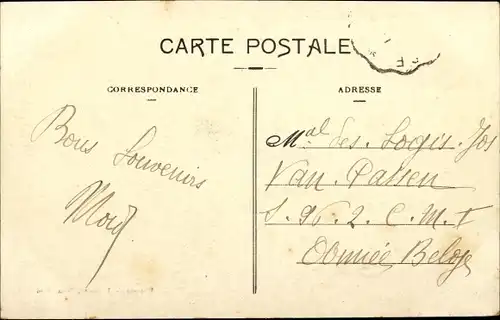 CARTE POSTALE
CORRESPONDANCE
ADRESSE
Bons Souvenirs
Mal des. Logis. Jos
Van. Passen
S. 96. 2. C. M. I
Armée Belge